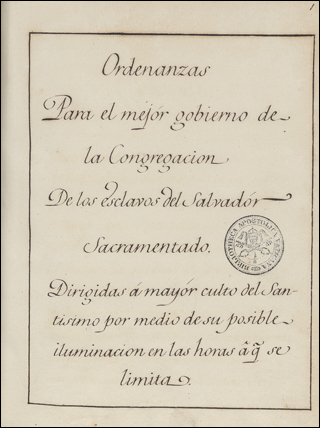 1
Ordenanzas
Para el mejór gobierno de
la Congregacion
De los esclavos del Salvadór
Sacramentado.
BIBLIOTHECA APOSTOLICA VATICANA
Dirigidas á mayór culto del San-
tisimo por medio de su posible
iluminacion en las horas â q̃ se
limita.